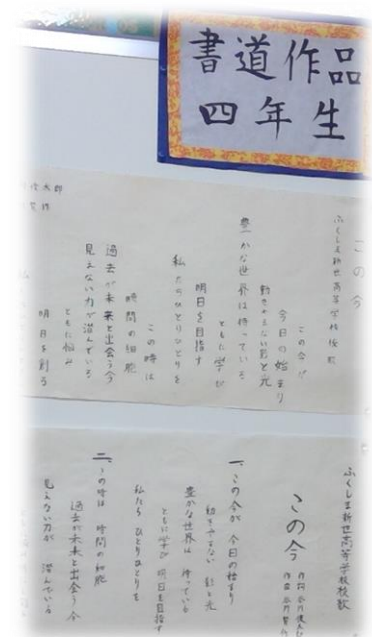 書道作品
四年生
この今
ふくしま新世高等学校校歌
この今が
今日の始まり
動きやまない影と光
豊かな世界は待っている
ともに学び
明日を目指す
私たちひとりひとりを
この時は
時間の細胞
過去が未来と出会う今
見えない力が潜んでいる
ともに悩み
明日を創る
ふくしま新世高等学校校歌
この今
一、この今が 今日の始まり
動きやまない 影と光
豊かな世界は 待っている
ともに学び 明日を目指す
私たち ひとりひとりを
二、この時は 時間の細胞
過去が未来と出会う今
見えない力が 潜んでいる